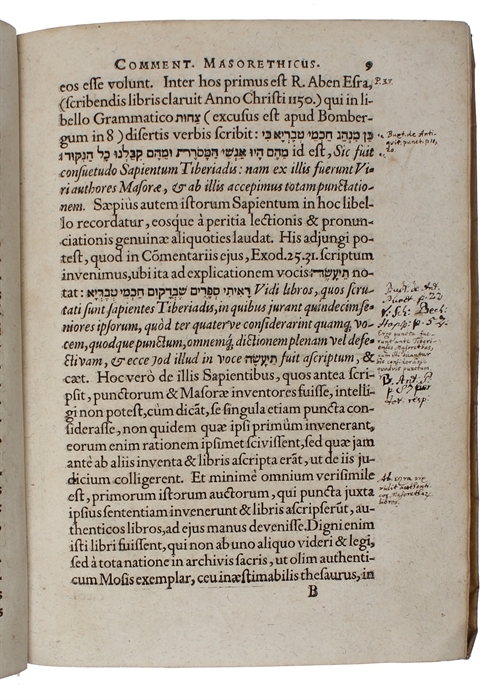 COMMENT. MASORETHICUS. 9
eos esse volunt. Inter hos primus est R. Aben Esra,
(scribendis libris claruit Anno Christi 1150.) qui in li-
bello Grammatico צחות (excusus est apud Bomber-
gum in 8) disertis verbis scribit: כן מנהג חכמי טבריא כי
מהם היו אנשי המסרת ומהם קבלנו כל הנקוד id est, Sic fuit
consuetudo Sapientum Tiberiadis: nam ex illis fuerunt Vi-
ri authores Masoræ, & ab illis accepimus totam punctatio-
nem. Sæpiùs autem istorum Sapientum in hoc libel-
lo recordatur, eosque à peritia lectionis & pronun-
ciationis genuinæ aliquoties laudat. His adjungi po-
test, quod in Cōmentariis ejus, Exod. 25. 31. scriptum
invenimus, ubi ita ad explicationem vocis תיעשה no-
tat: ראיתי ספרים שבדקום חכמי טבריא Vidi libros, quos scru-
tati sunt sapientes Tiberiadis, in quibus jurant quindecim se-
niores ipsorum, quòd ter quaterve considerarint quamq; vo-
cem, quodque punctum, omnemq; dictionem plenam vel defe-
ctivam, & ecce Jod illud in voce תיעשה fuit ascriptum, &
cæt. Hoc verò de illis Sapientibus, quos antea scri-
psit, punctorum & Masoræ inventores fuisse, intelli-
gi non potest, cùm dicāt, se singula etiam puncta con-
siderasse, non quidem quæ ipsi primùm invenerant,
eorum enim rationem ipsimet scivissent, sed quæ jam
antè ab aliis inventa & libris ascripta erāt, ut de iis ju-
dicium colligerent. Et minimè omnium verisimile
est, primorum istorum auctorum, qui puncta juxta
ipsius sententiam invenerunt & libris ascripserūt, au-
thenticos libros, ad ejus manus devenisse. Digni enim
isti libri fuissent, qui non ab uno aliquo videri & legi,
sed à tota natione in archivis sacris, ut olim authenti-
cum Mosis exemplar, ceu inæstimabilis thesaurus, in
B
P. 33.
Buxt. de Anti-
quit. punct. p. 11,
Buxt. de Ant.
Punct. p. 22